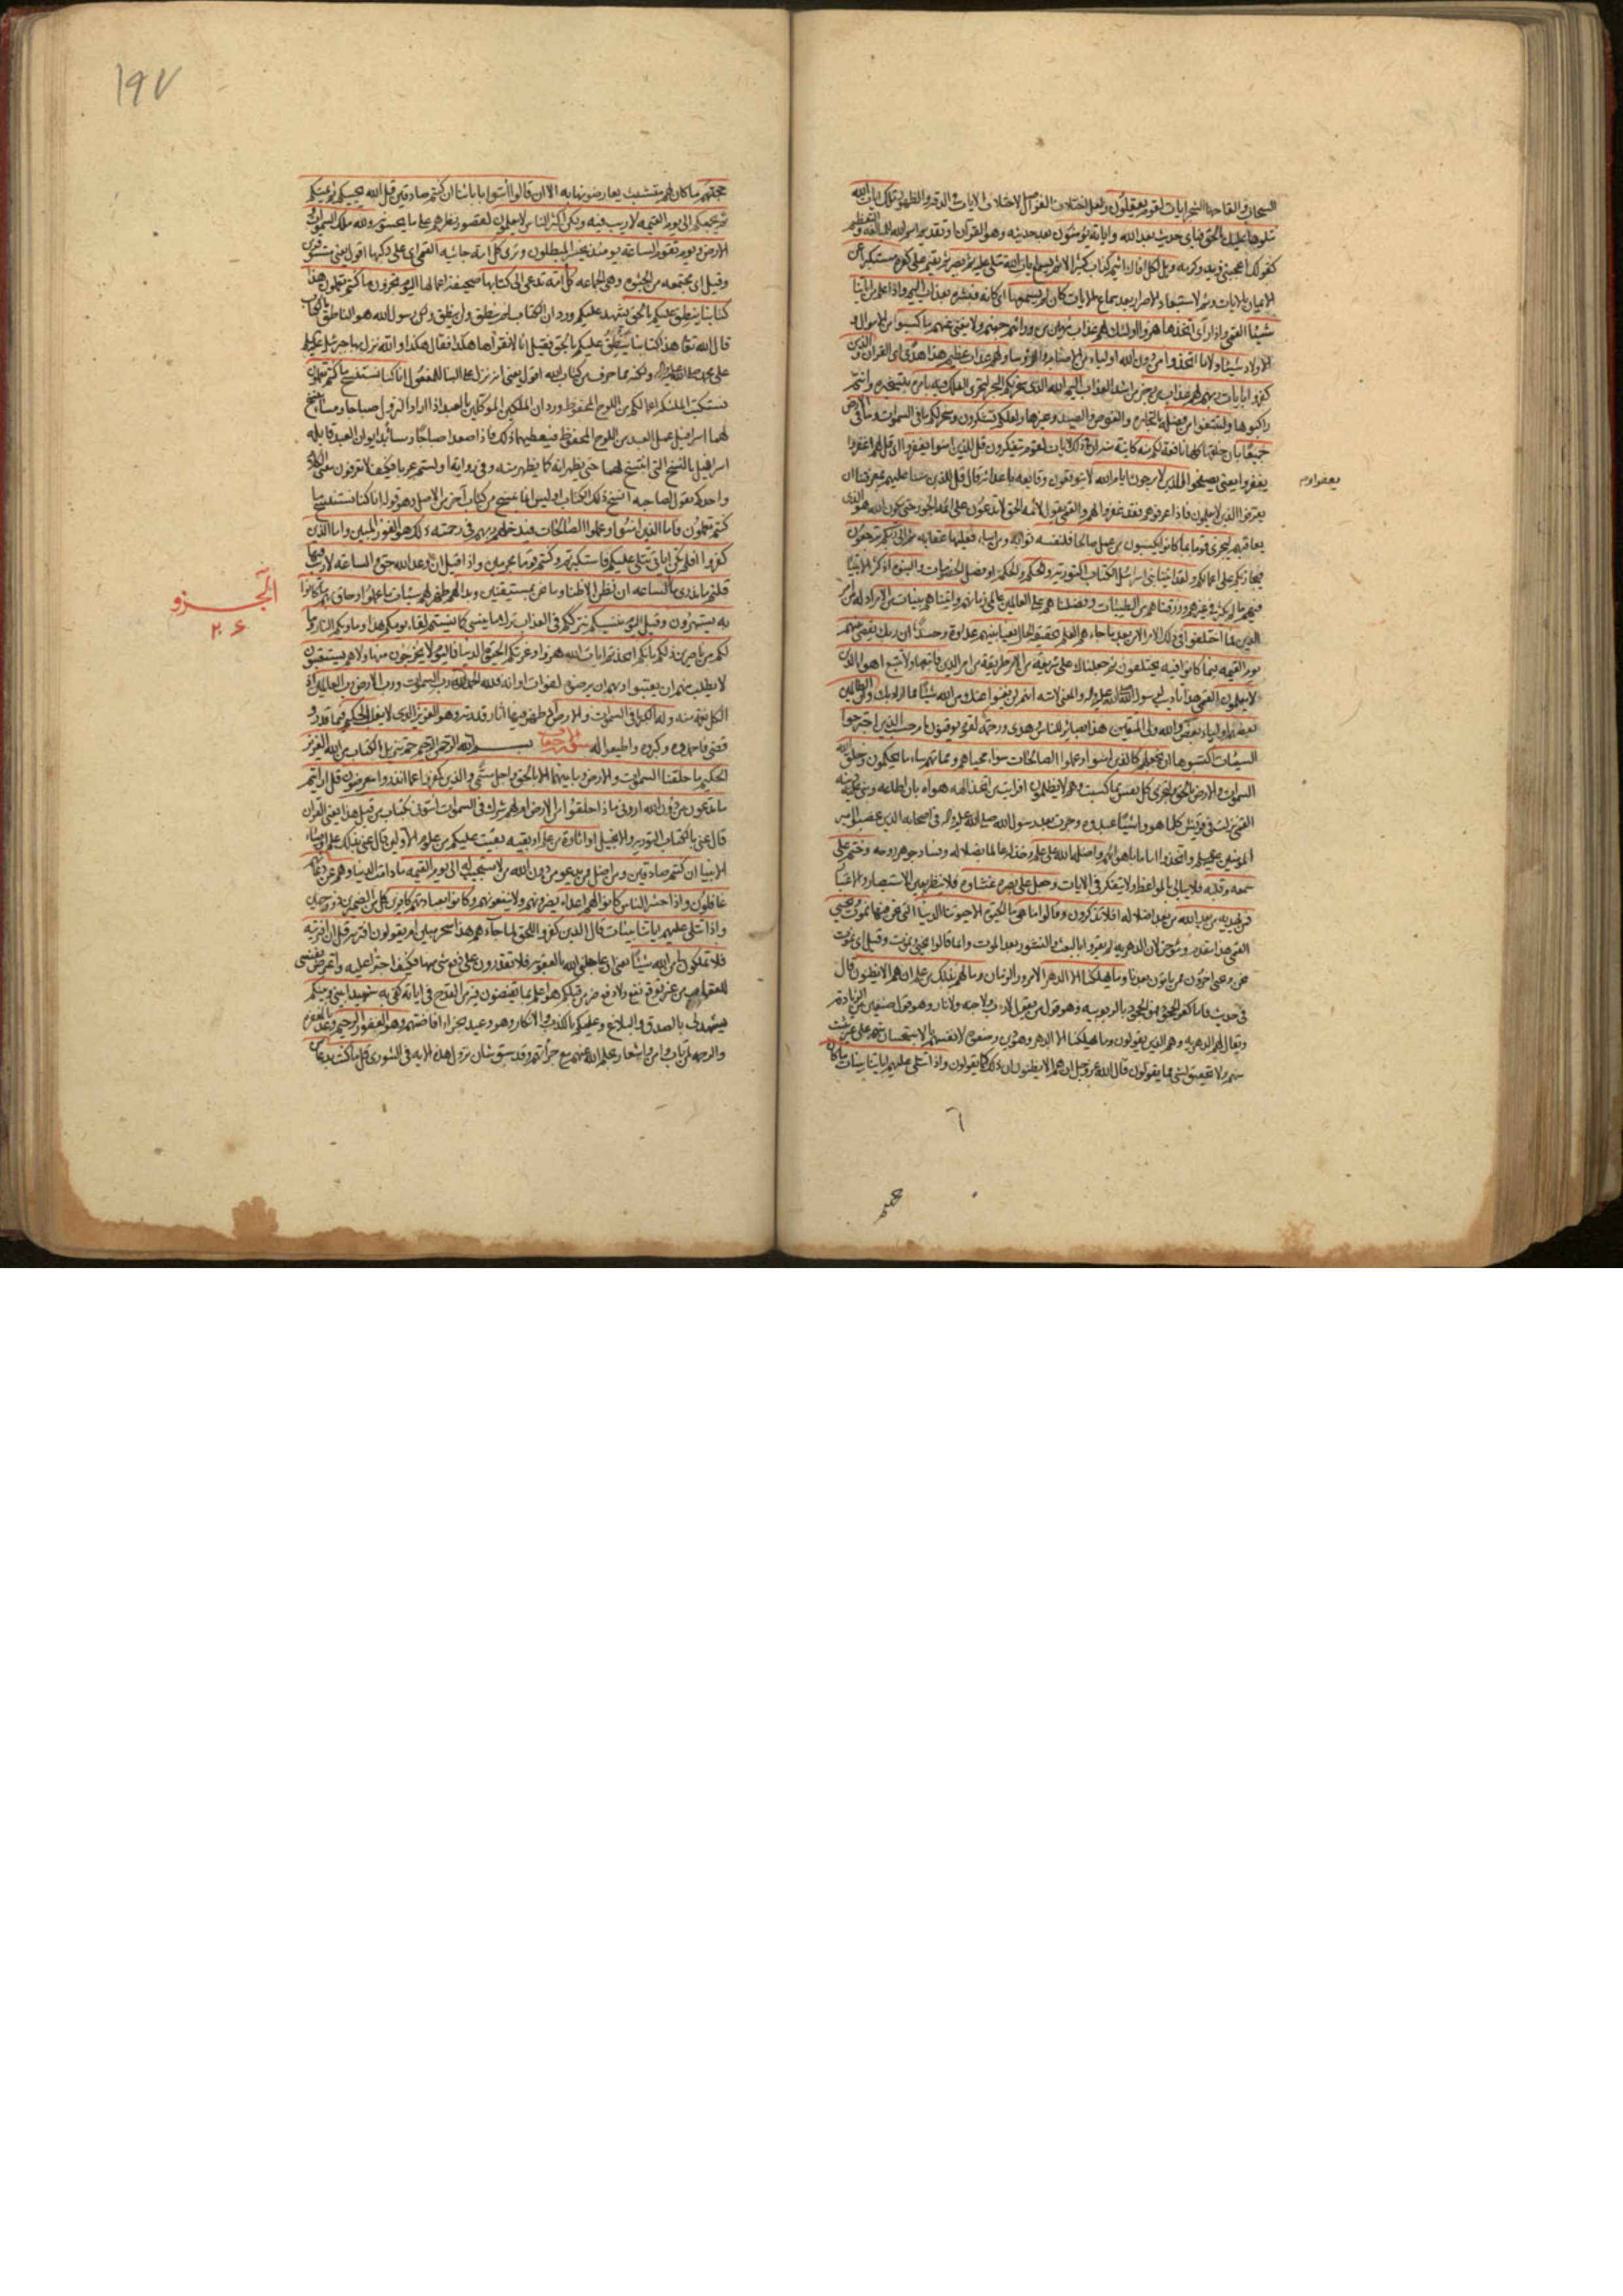 السحاب والقاحها الشجر ايات لقوم يعقلون ولعل اختلاف الفواصل لاختلاف الايات في الدقة والظهور تلك ايات الله
نتلوها عليك بالحق فباي حديث بعد الله واياته يؤمنون بعد حديثه وهو القرآن وتقديم اسم الله للمبالغة والتعظيم
كقولك اعجبني زيد وكرمه ويل لكل افاك اثيم كذاب كثير الاثم يسمع ايات الله تتلى عليه ثم يصر يقيم على كفره مستكبرا عن
الايمان بالايات وثم لاستبعاد الاصرار بعد سماع الايات كان لم يسمعها اي كانه فبشره بعذاب اليم واذا علم من اياتنا
شيئا القمي واذا رأى اتخذها هزوا اولئك لهم عذاب مهين من ورائهم جهنم ولا يغني عنهم ما كسبوا من الاموال و
الاولاد شيئا ولا ما اتخذوا من دون الله اولياء من الاصنام والرؤساء ولهم عذاب عظيم هذا هدى اي القرآن والذين
كفروا بايات ربهم لهم عذاب من رجز من اشد العذاب اليم الله الذي سخر لكم البحر لتجري الفلك فيه بامره بتسخيره وانتم
راكبوها ولتبتغوا من فضله بالتجارة والغوص والصيد وغيرها ولعلكم تشكرون وسخر لكم ما في السموات وما في الارض
جميعا بان خلقها كلها نافعة لكم منه كاينة منه ان في ذلك لايات لقوم يتفكرون قل للذين امنوا يغفروا اي قل لهم اغفروا
يغفروا يعني يصفحوا للذين لا يرجون ايام الله لا يتوقعون وقايعه باعدائه قال قل للذين مننا عليهم بمعرفتنا ان
يعرفوا الذين لا يعلمون فاذا عرفوهم فقد غفروا لهم والقمي يقول لائمة الحق لا تدعون على ائمة الجور حتى يكون الله هو الذي
يعاقبهم ليجزي قوما بما كانوا يكسبون من عمل صالحا فلنفسه ثوابه ومن اساء فعليها عقابه ثم الى ربكم ترجعون
فيجازيكم على اعمالكم ولقد اتينا بني اسرائيل الكتاب التورية والحكم والحكمة او فصل الخصومات والنبوة اذ كثر الانبياء
فيهم ما لم يكثر في غيرهم ورزقناهم من الطيبات وفضلناهم على العالمين عالمي زمانهم واتيناهم بينات من الامر ادلة من امر
الدين فما اختلفوا في ذلك الامر الا من بعد ما جاءهم العلم بحقيقة الحال بغيا بينهم عداوة وحسدا ان ربك يقضي بينهم
يوم القيمة فيما كانوا فيه يختلفون ثم جعلناك على شريعة من الامر طريقة من امر الدين فاتبعها ولا تتبع اهواء الذين
لا يعلمون القمي هذا تأديب لرسول الله صلى الله عليه واله والمعنى لامته انهم لن يغنوا عنك من الله شيئا مما اراد بك وان الظالمين
بعضهم اولياء بعض والله ولي المتقين هذا بصائر للناس وهدى ورحمة لقوم يوقنون ام حسب الذين اجترحوا
السيئات اكتسبوها ان نجعلهم كالذين امنوا وعملوا الصالحات سواء محياهم ومماتهم ساء ما يحكمون وخلق الله
السموات والارض بالحق ولتجزى كل نفس بما كسبت وهم لا يظلمون افرايت من اتخذ الهه هواه بان اطاعه وبنى عليه دينه
القمي نزلت في قريش كلما هووا شيئا عبدوه وجرت بعد رسول الله صلى الله عليه واله في اصحابه الذين غصبوا امير
المؤمنين عليه السلم واتخذوا اماما باهوائهم واضله الله على علم وخذله عالما بضلاله وفساد جوهر روحه وختم على
سمعه وقلبه فلا يبالي بالمواعظ ولا يتفكر في الايات وجعل على بصره غشاوة فلا ينظر بعين الاستبصار والاعتبار
فمن يهديه من بعد الله من بعد اضلاله افلا تذكرون وقالوا ما هي ما الحيوة الا حيوتنا الدنيا التي نحن فيها نموت ونحيى
القمي هذا مقدم ومؤخر لان الدهرية لم يقروا بالبعث والنشور بعد الموت وانما قالوا نحيى ونموت وقيل اي نموت
نحن ونحيى اخرون ممن ياتون بعدنا وما يهلكنا الا الدهر الا مرور الزمان وما لهم بذلك من علم ان هم الا يظنون قال
في حديث فاما كفر الجحود فهو الجحود بالربوبية وهو قول من يقول لا رب ولا جنة ولا نار وهو قول صنفين من الزنادقة
ويقال لهم الدهرية وهم الذين يقولون وما يهلكنا الا الدهر وهو دين وضعوه لانفسهم بالاستحسان منهم على غير تثبت
منهم ولا تحقيق لشيء مما يقولون قال الله عز وجل ان هم الا يظنون ان ذلك كما يقولون واذا تتلى عليهم اياتنا بينات ما كان
١٩٧
حجتهم ما كان لهم متشبث يعارضونها به الا ان قالوا ائتوا بابائنا ان كنتم صادقين قل الله يحييكم ثم يميتكم
ثم يجمعكم الى يوم القيمة لا ريب فيه ولكن اكثر الناس لا يعلمون لقصور نظرهم على ما يحسونه ولله ملك السموات و
الارض ويوم تقوم الساعة يومئذ يخسر المبطلون وترى كل امة جاثية القمي اي على ركبها اقول يعني مستوفزين
وقيل اي مجتمعة من الجثوة وهي الجماعة كل امة تدعى الى كتابها صحيفة اعمالها اليوم تجزون ما كنتم تعملون هذا
كتابنا ينطق عليكم بالحق يشهد عليكم ورد ان الكتاب لم ينطق ولن ينطق ولكن رسول الله هو الناطق بالكتاب
قال الله تعا هذا كتابنا ينطق عليكم بالحق فقيل انا لا نقرأها هكذا فقال هكذا والله نزل بها جبرئيل عليه السلم
على محمد صلى الله عليه واله ولكنه مما حرف من كتاب الله اقول يعني انه نزل على البناء للمفعول انا كنا نستنسخ ما كنتم تعملون
نستكتب الملئكة اعمالكم من اللوح المحفوظ ورد ان الملكين الموكلين بالعبد اذا ارادا النزول صباحا ومساء ينسخ
لهما اسرافيل عمل العبد من اللوح المحفوظ فيعطيهما ذلك فاذا صعدا صباحا ومساء بديوان العبد قابله
اسرافيل بالنسخ التي انتسخ لهما حتى يظهر انه كما نظهر منه وفي رواية اولستم عربا فكيف لا تعرفون معنى الكلام
واحدكم يقول لصاحبه انسخ ذلك الكتاب اوليس انما ينسخ من كتاب آخر من الاصل وهو قوله انا كنا نستنسخ ما
كنتم تعملون فاما الذين امنوا وعملوا الصالحات فيدخلهم ربهم في رحمته ذلك هو الفوز المبين واما الذين
كفروا افلم تكن اياتي تتلى عليكم فاستكبرتم وكنتم قوما مجرمين واذا قيل ان وعد الله حق والساعة لا ريب فيها
قلتم ما ندري ما الساعة ان نظن الا ظنا وما نحن بمستيقنين وبدا لهم ظهر لهم سيئات ما عملوا وحاق بهم ما كانوا
به يستهزؤن وقيل اليوم ننسيكم نترككم في العذاب ترك ما ينسى كما نسيتم لقاء يومكم هذا وماويكم النار وما
لكم من ناصرين ذلكم بانكم اتخذتم ايات الله هزوا وغرتكم الحيوة الدنيا فاليوم لا يخرجون منها ولا هم يستعتبون
لا يطلب منهم ان يعتبوا ربهم ان يرضوه لفوات اوانه فلله الحمد رب السموات ورب الارض رب العالمين اذ
الكل نعمة منه وله الكبرياء في السموات والارض اذ ظهر فيها آثار قدرته وهو العزيز الذي لا يغلب الحكيم فيما قدر و
قضى فاحمدوه وكبروه واطيعوا له سورة الاحقاف بسم الله الرحمن الرحيم حم تنزيل الكتاب من الله العزيز
الحكيم ما خلقنا السموات والارض وما بينهما الا بالحق واجل مسمى والذين كفروا عما انذروا معرضون قل ارايتم
ما تدعون من دون الله اروني ماذا خلقوا من الارض ام لهم شرك في السموات ائتوني بكتاب من قبل هذا يعني القرآن
قال عنى بالكتاب التورية والانجيل او اثارة من علم او بقية بقيت عليكم من علوم الاولين قال عنى بذلك علم اوصياء
الانبيا ان كنتم صادقين ومن اضل ممن يدعو من دون الله من لا يستجيب له الى يوم القيمة ما دامت الدنيا وهم عن دعائهم
غافلون واذا حشر الناس كانوا لهم اعداء يضرونهم ولا ينفعونهم وكانوا بعبادتهم كافرين كل من الضميرين ذو وجهين
واذا تتلى عليهم اياتنا بينات قال الذين كفروا للحق لما جاءهم هذا سحر مبين ام يقولون افتريه قل ان افتريته
فلا تملكون لي من الله شيئا يعني ان عاجلني الله بالعقوبة فلا تقدرون على دفع شيء منها فكيف اجترئ عليه واعرض نفسي
للعقاب من غير توقع نفع ولا دفع ضر من قبلكم هو اعلم بما تفيضون فيه من القدح في اياته كفى به شهيدا بيني وبينكم
يشهد لي بالصدق والبلاغ وعليكم بالكذب والانكار وهو وعيد بجزاء افاضتهم وهو الغفور الرحيم وعد بالمغفرة
والرحمة لمن تاب وامن واشعار بحلم الله عنهم مع جرأتهم وقد سبق شان نزول هذه الاية في الشورى قل ما كنت بدعا من
الجزو
٢٠۶